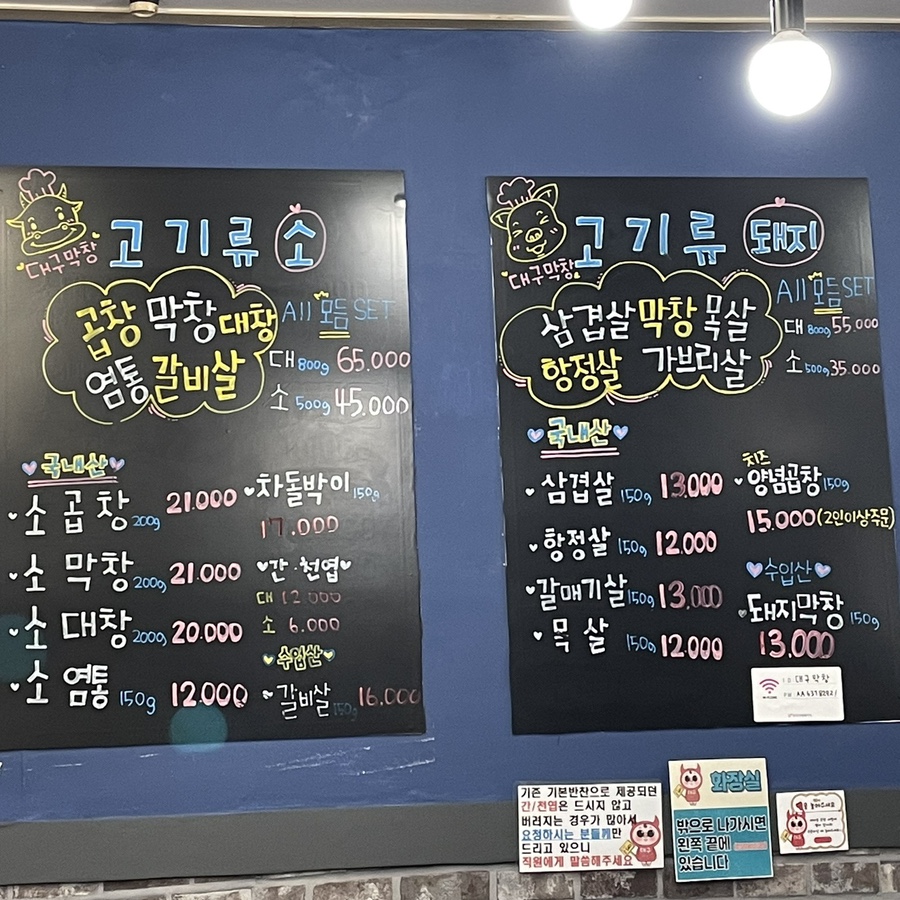 대구막창
고기류 소
곱창 막창 대창
염통 갈비살
All 모듬 SET
대 800g 65.000
소 500g 45.000
국내산
소 곱창 200g 21.000
소 막창 200g 21.000
소 대창 200g 20.000
소 염통 150g 12.000
차돌박이 150g
17.000
간.천엽
대 12.000
소 6.000
수입산
갈비살 150g 16.000
대구막창
고기류 돼지
삼겹살 막창 목살
항정살 가브리살
All 모듬 SET
대 800g 55.000
소 500g 35.000
국내산
삼겹살 150g 13.000
항정살 150g 12.000
갈매기살 150g 13.000
목살 150g 12.000
치즈
양념곱창 150g
15.000 (2인이상주문)
수입산
돼지막창 150g
13.000
대구막창
기존 기본반찬으로 제공되던
간/천엽은 드시지 않고
버려지는 경우가 많아서
요청하시는 분들께만
드리고 있으니
직원에게 말씀해주세요
화장실
밖으로 나가시면
왼쪽 끝에
있습니다